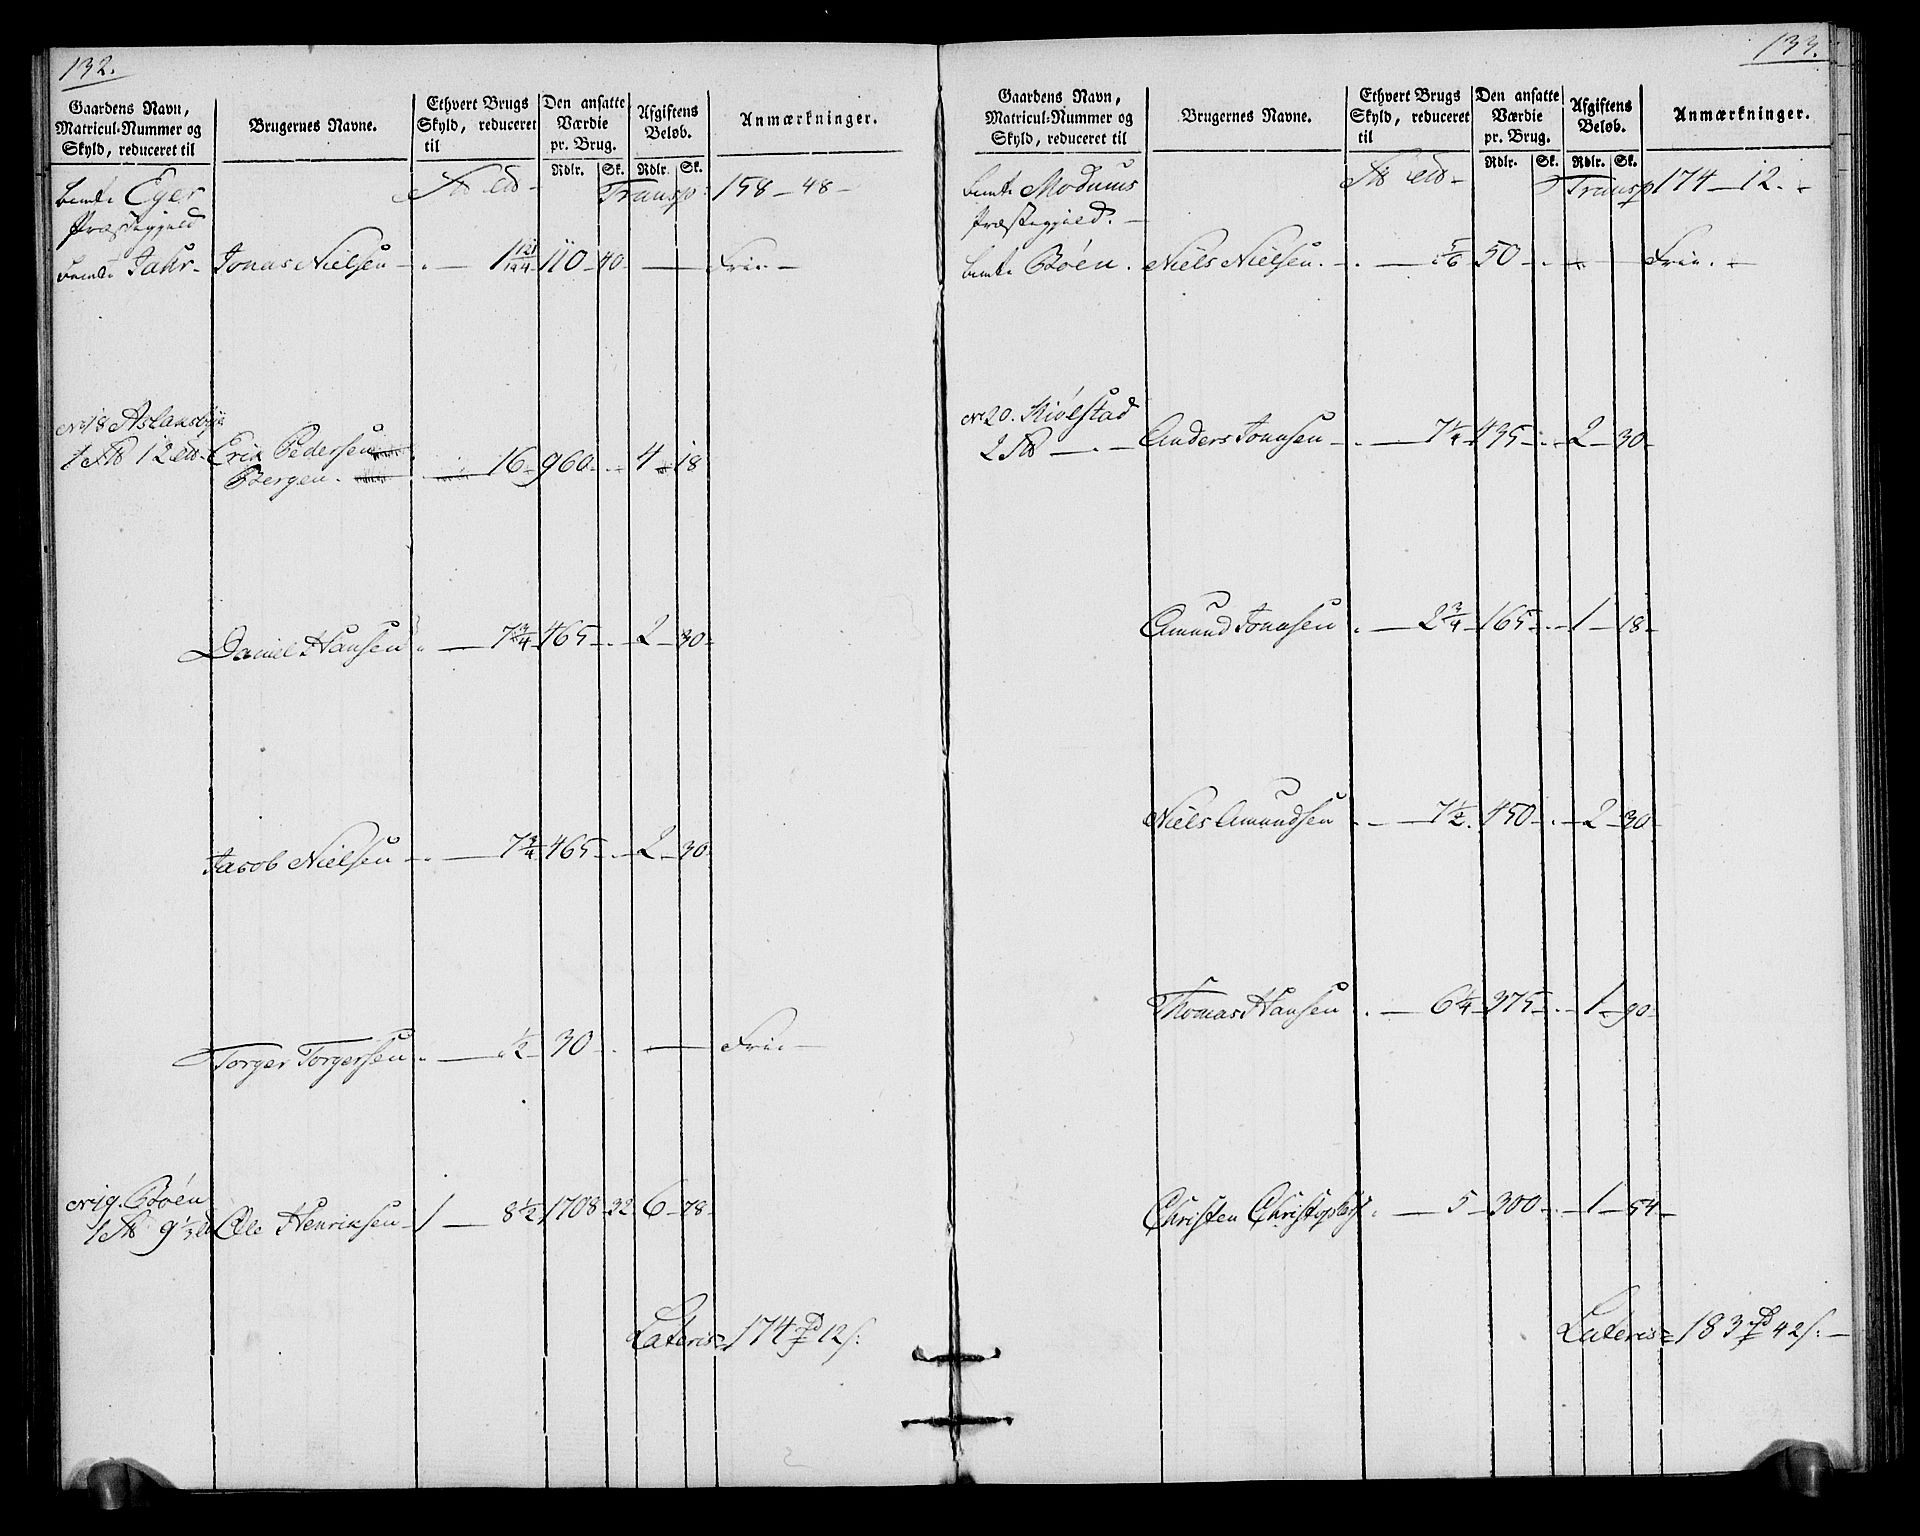 132.
Gaardens Navn, Matricul-Nummer og Skyld, reduceret til
Brugernes Navne.
Ethvert Brugs Skyld, reduceret til
Den ansatte Værdie pr. Brug.
Afgiftens Beløb.
Anmærkninger.
Rdlr. Sk. Rdlr. Sk.
bemte Eger Transp: 158 - 48 -
Præstegjeld
bemte Jahr - Jonas Nielsen - . - 1 121/144 110 - 40 - — Frie -
No 18 Aslansbye
1 12 Erik Pedersen
Bergen . 16 - 960 - . - 4 - 18
Daniel Hansen . — 7 3/4 - 465 - . - 2 - 30 -
Jacob Nielsen - . — 7 3/4 465 - . - 2 - 30 -
Torger Torgersen . — 1/2 - 30 - . — Frie -
No 19. Böen
1 9 1/3 Ole Henriksen - 1 — 8 1/2 1708 - 32 6 - 78 -
Lateris = 174 12 s:
133.
Gaardens Navn, Matricul-Nummer og Skyld, reduceret til
Brugernes Navne.
Ethvert Brugs Skyld, reduceret til
Den ansatte Værdie pr. Brug.
Afgiftens Beløb.
Anmærkninger.
Rdlr. Sk. Rdlr. Sk.
bemte Modums Transp 174 - 12 . -
Præstegjeld. -
bemte Böen . Niels Nielsen . - . — 5/6 50 - . - — Frie . -
No 20. Kiölstad
2 — . - Anders Jonnsen - . — 7 1/4 435 - . - 2 - 30 -
Amund Jonnsen . — 2 3/4 - 165 - . - 1 - 18 -
Niels Amundsen . - — 7 1/2 . 450 - . - 2 - 30 -
Thomas Hansen . — 6 1/4 - 375 - . - 1 - 90 -
Christen Christophers . — 5 - 300 - . - 1 - 54 -
Lateris = 183 42 s: -